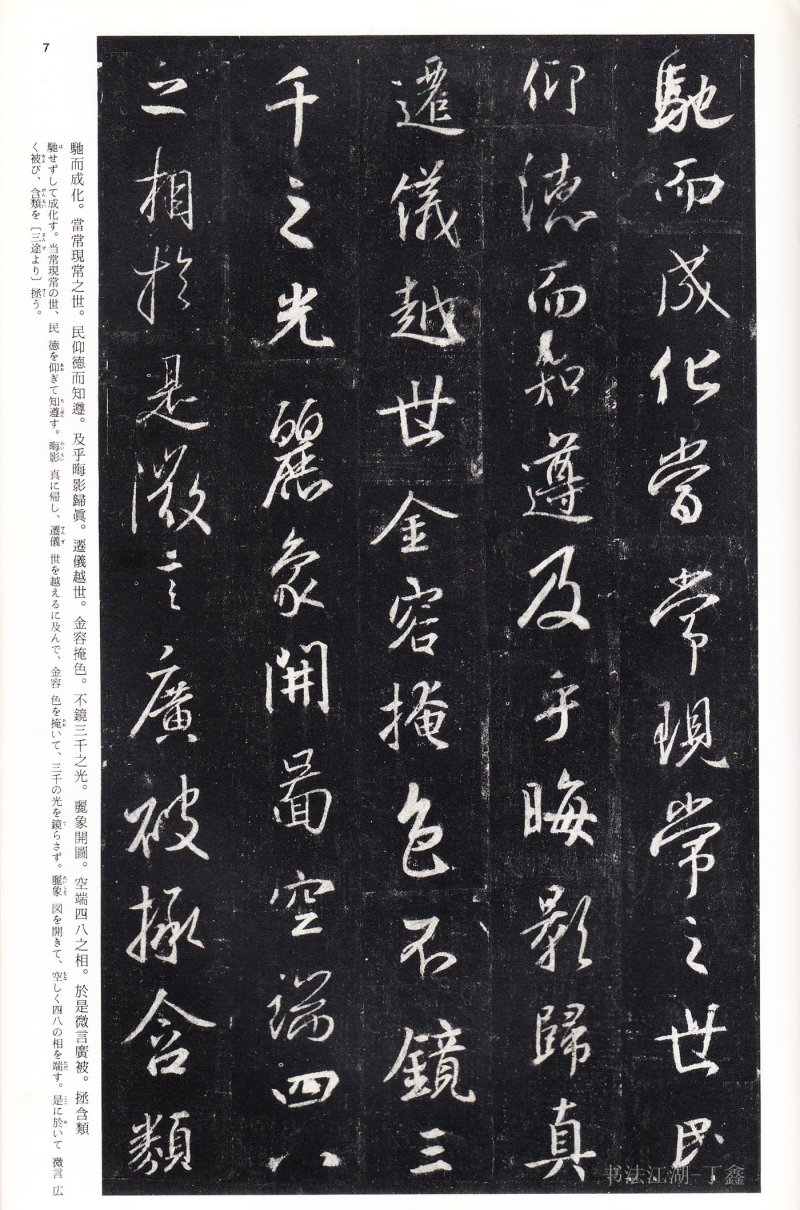 馳而成化當常現常之世民
仰德而知遵及乎晦影歸真
遷儀越世金容掩色不鏡三
千之光麗象開圖空端四八
之相於是微言廣被拯含類
馳而成化。當常現常之世。民仰德而知遵。及乎晦影歸眞。遷儀越世。金容掩色。不鏡三千之光。麗象開圖。空端四八之相。於是微言廣被。拯含類
馳せずして成化す。当常現常の世、民 德を仰ぎて知遵す。晦影 真に帰し、遷儀 世を越えるに及んで、金容 色を掩いて、三千の光を鏡らさず。麗象 図を開きて、空しく四八の相を端す。是に於いて 微言 広
く被び、含類を〔三途より〕拯う。
7
书法江湖-丁鑫